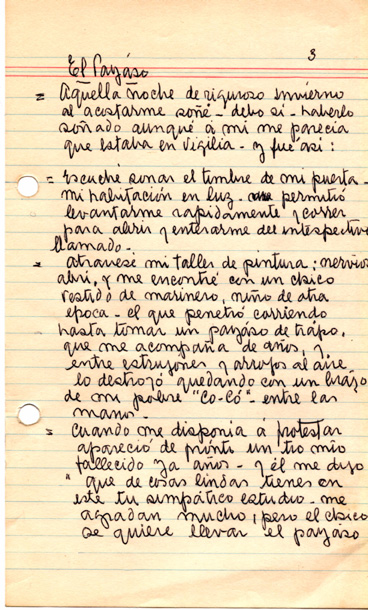 3
El Payáso
= Aquella noche de riguroso invierno
al acostarme soñé - debo sí - haberlo
soñado aunqué á mi me parecia
que estaba en vigilia - y fue así:
= Escuché sonar el timbre de mi puerta -
mi habitación en luz - me permitió
levantarme rapidamente y correr
para abrir y enterarme del intespectivo
llamado -
Atravesé mi taller de pintura; nervioso
abrí, y me encontré con un chico
vestido de marinero, niño de otra
epoca - el que penetró corriendo
hasta tomar un payáso de trapo,
que me acompaña de años, y
entre estrujones y arrojos al aire
lo destrozó quedando con un brazo
de mi pobre "Co-Có" entre las
manos -
= Cuando me disponia á protestar
apareció de pronto un tio mio
fallecido ya años - y él me dijo
" que de cosas lindas tienes en
este tu simpático estudio - me
agradan mucho, pero el chico
se quiere llevar el payáso